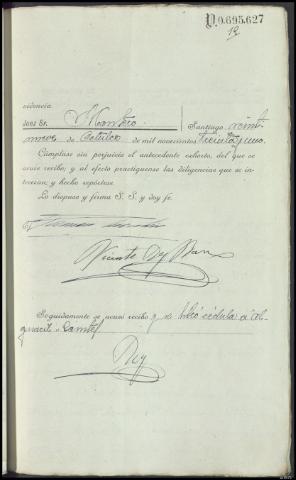 D.0.695,627
12
videncia
Juez Sr.
Santiago veinti
nueve de Octubre de mil novecientos treinta y uno.
Cúmplase sin perjuicio el antecedente exhorto, del que se
acuse recibo; y al efecto practíquense las diligencias que se in-
teresan; y hecho repórtese.
Lo dispuso y firma S. S. y doy fé.
Vicente Rey
Seguidamente se acusó recibo y se libró cédula a al-
guacil
Rey